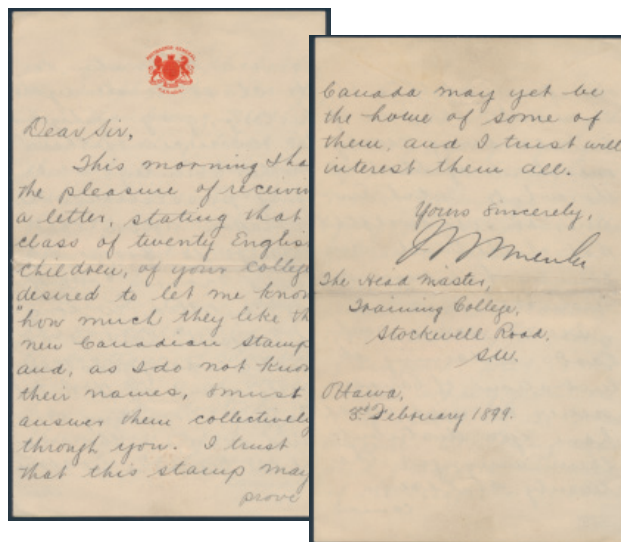 GOVERNOR GENERAL
CANADA
Dear Sir,
This morning I ha
the pleasure of receivin
a letter, stating that
class of twenty Englis
children, of your College
desired to let me know
"how much they like th
new Canadian stamp
and, as I do not know
their names, I must
answer them collectively
through you. I trust
that this stamp may
prove
Canada may yet be
the home of some of
them, and I trust will
interest them all.
Yours Sincerely,
The Head Master,
Training College,
Stockwell Road,
S.W.
Ottawa,
3rd February 1899.